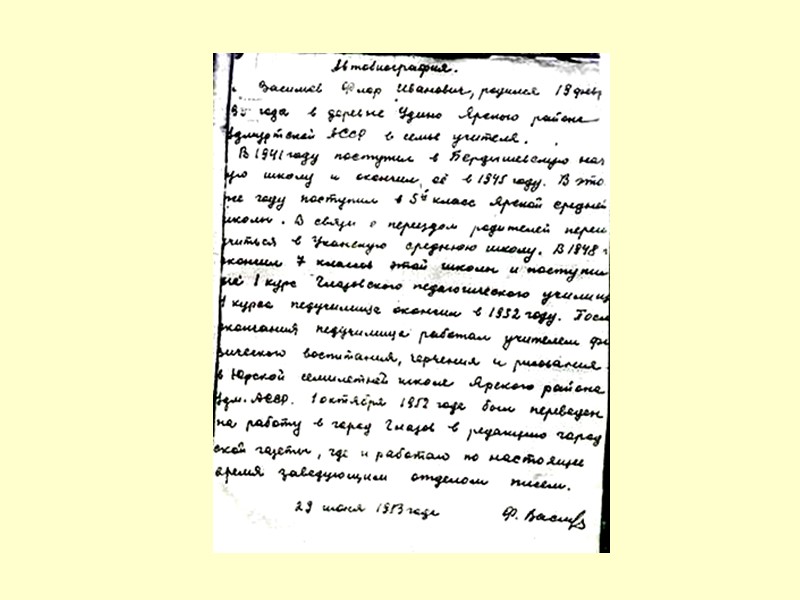 Автобиография.
Васильев Флор Иванович, родился 19 февр
35 года в деревне Удино Ярского района
Удмуртской АССР в семье учителя.
В 1941 году поступил в Бердышевскую нач
ую школу и окончил её в 1945 году. В это
же году поступил в 5й класс Ярской средней
школы. В связи с переездом родителей перешёл
учиться в Уканскую среднюю школу. В 1948 г
окончил 7 классов этой школы и поступил
на 1 курс Глазовского педагогического училищ
4 курса педучилища окончил в 1952 году. После
окончания педучилища работал учителем фи
зического воспитания, черчения и рисования
в Юрской семилетней школе Ярского района
Удм. АССР. 1 октября 1952 года был переведен
на работу в город Глазов в редакцию город
ской газеты, где и работаю по настоящее
время заведующим отделом писем.
29 июня 1953 года Ф. Васильев